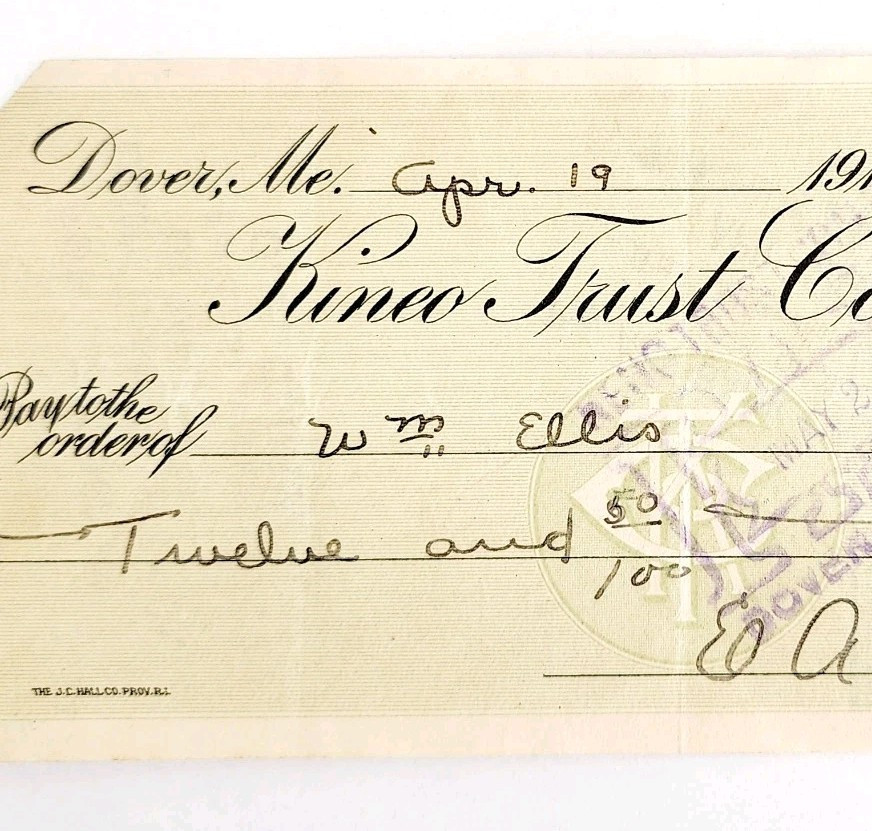 Dover, Me. Apr. 19 191
Kineo Trust Co
Pay to the order of Wm Ellis
Twelve and 50/100
E A
THE J.C. HALL CO. PROV. R.I.
MAY 2
DOVER